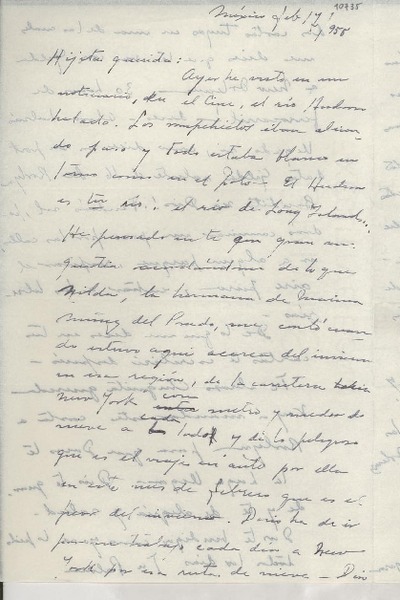 10735
México feb/7/
1955
Hijita querida:
Ayer he visto en un
noticiario, en el Cine, el río Hudson
helado. Los rompehielos iban abrien
do paso y todo estaba blanco en
torno como en el Polo. El Hudson
es tu río.. el río de Long Island..
He pensado en ti con gran an
gustia acordándome de lo que
Nilda, la hermana de Mariana
Muñoz del Prado, me contó cuan
do estuvo aquí acerca del invierno
en esa región, de la carretera
New York con metro y medio de
nieve a cada lado y de lo peligroso
que es el viaje en auto por ella
en este mes de febrero que es el
peor del invierno. Doris ha de ir
para su trabajo cada día a New
York por esa ruta de nieve — Dios